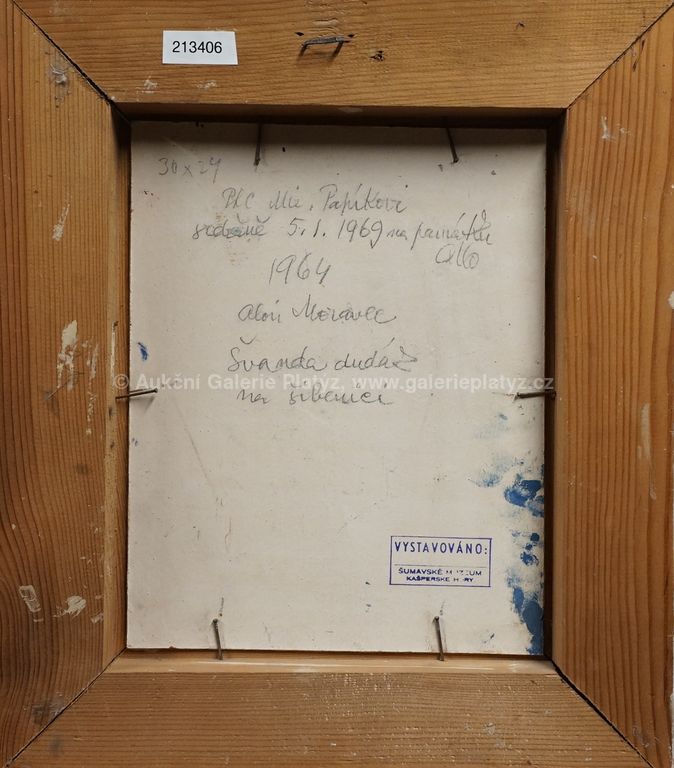 213406
30 x 24
Mir. Papíkovi
srdečně 5. 1. 1969 na památku
1964
Alois Moravec
Švanda dudák
na šibenici
© Aukční Galerie Platýz, www.galerieplatyz.cz
VYSTAVOVÁNO:
ŠUMAVSKÉ M ZEUM
KAŠPERSKÉ H RY